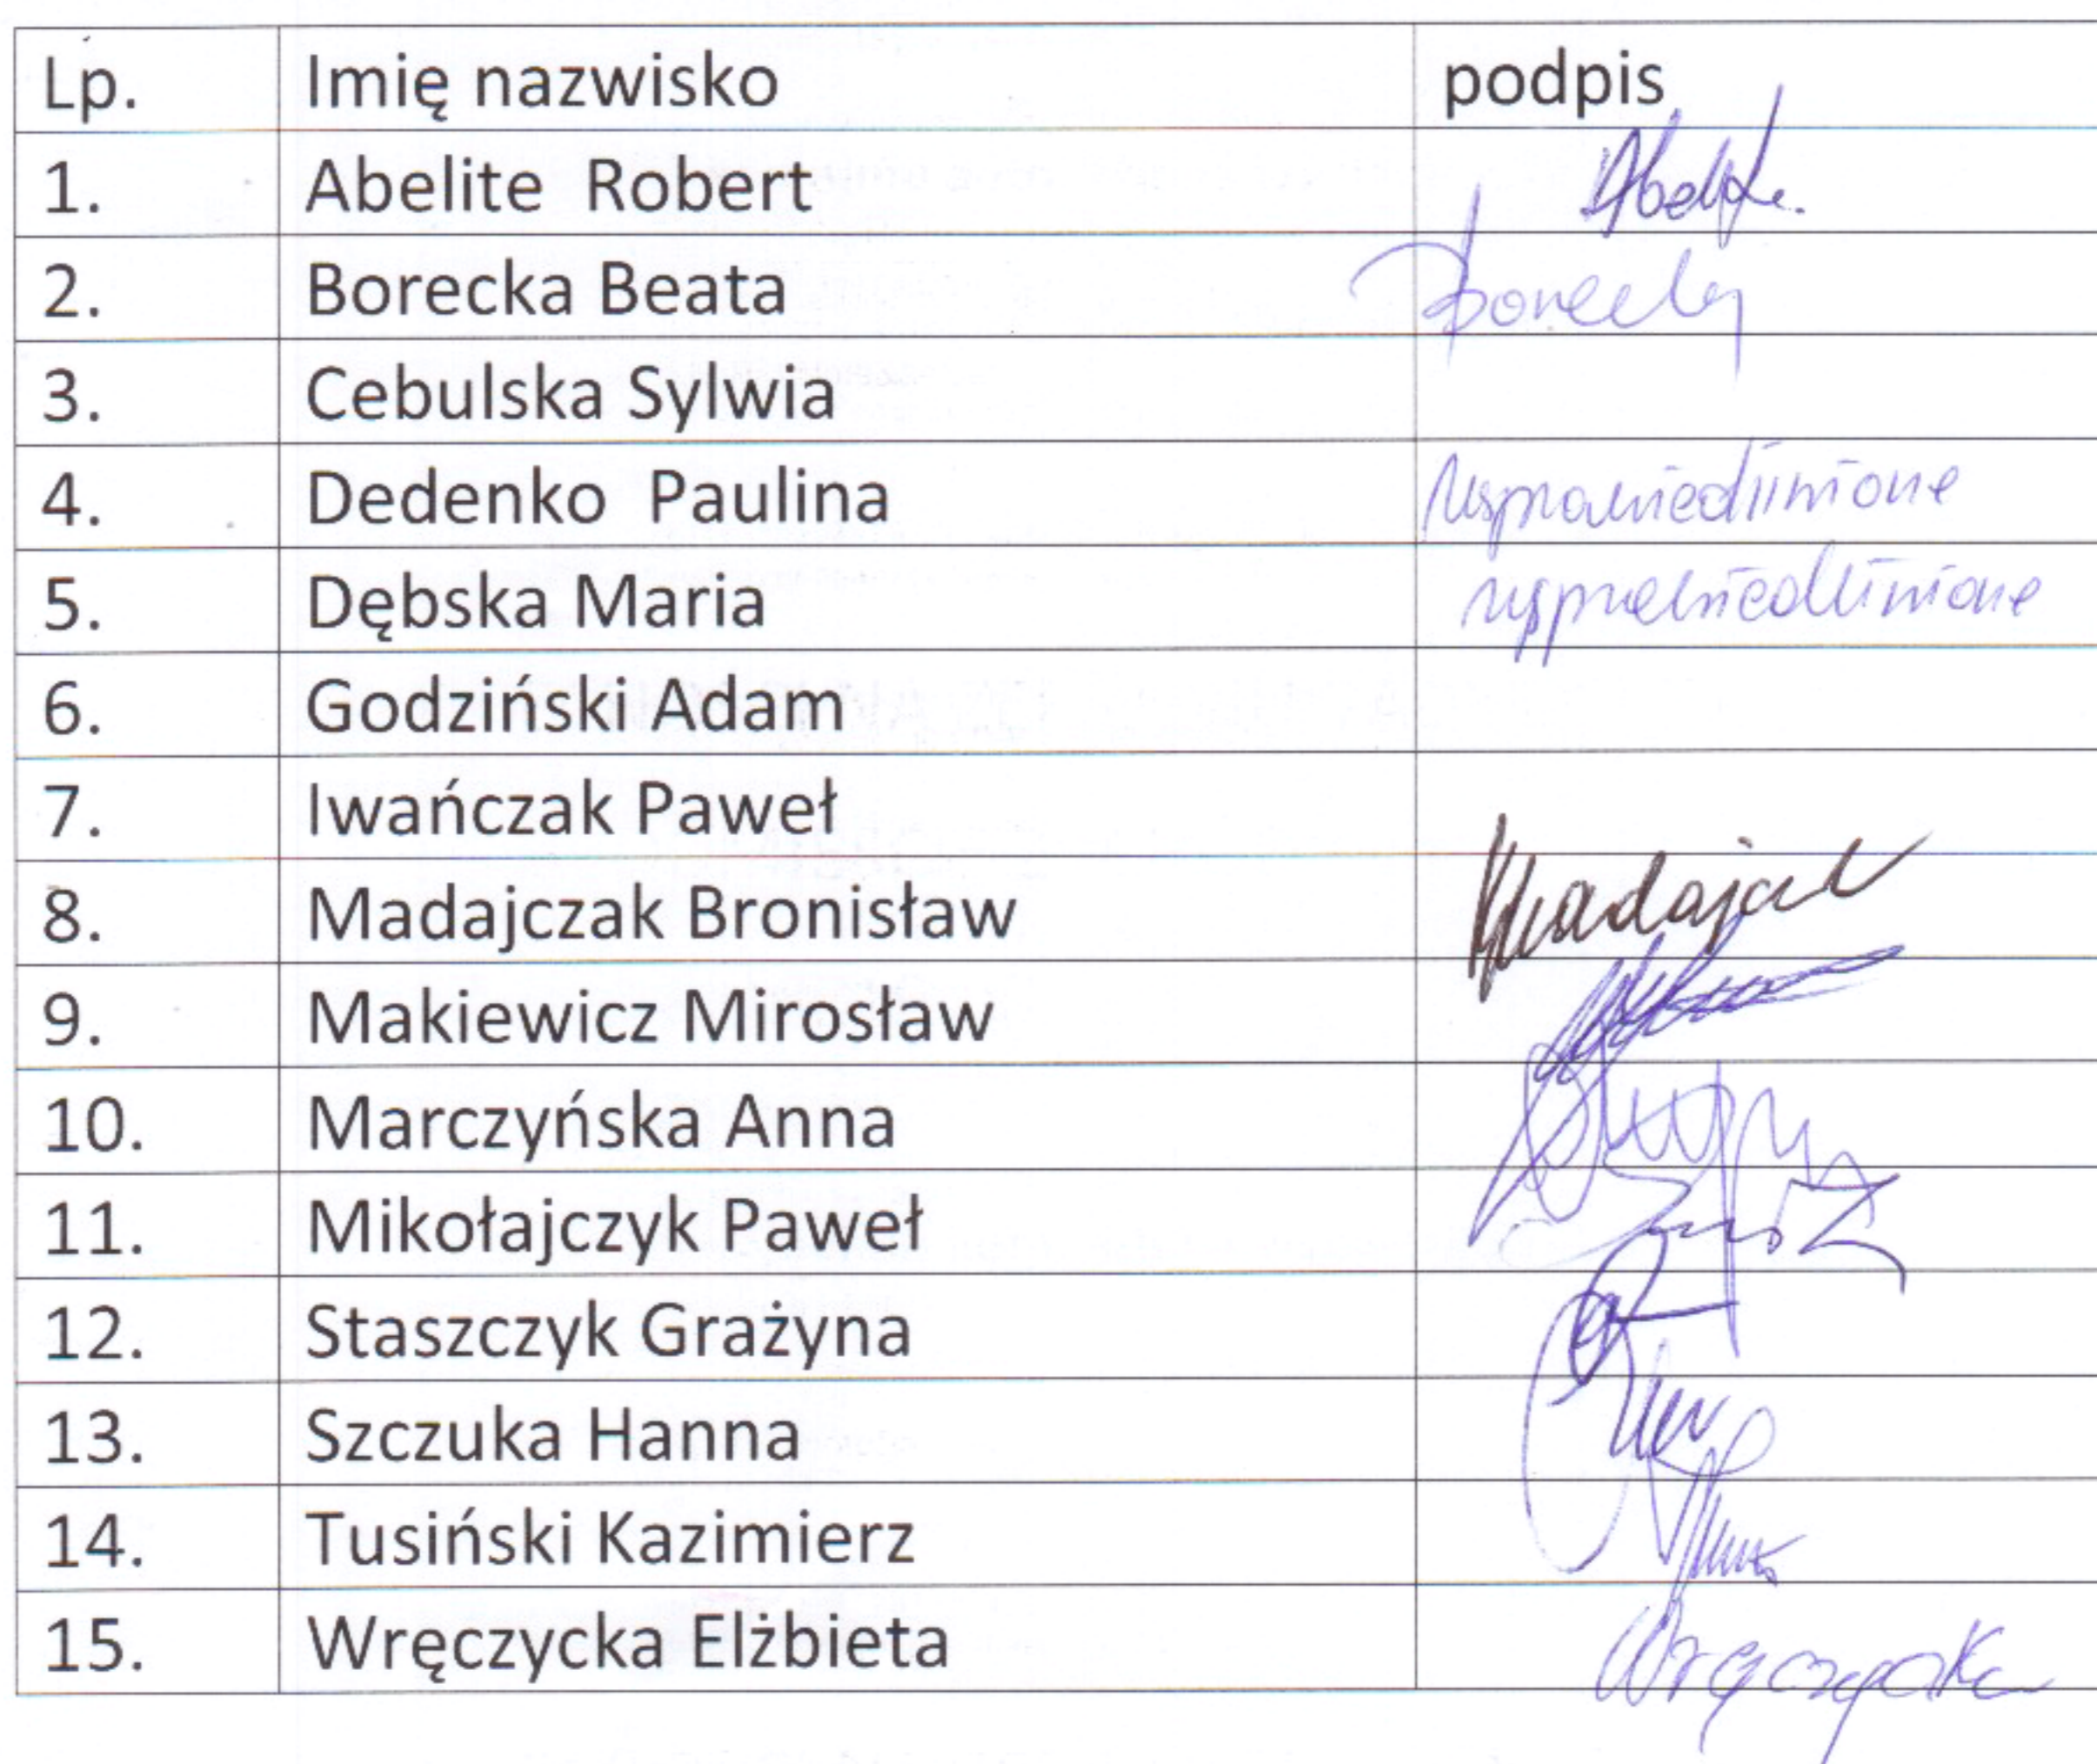 Lp. Imię nazwisko podpis
1. Abelite Robert
2. Borecka Beata
3. Cebulska Sylwia
4. Dedenko Paulina usprawiedliwione
5. Dębska Maria usprawiedliwione
6. Godziński Adam
7. Iwańczak Paweł
8. Madajczak Bronisław
9. Makiewicz Mirosław
10. Marczyńska Anna
11. Mikołajczyk Paweł
12. Staszczyk Grażyna
13. Szczuka Hanna
14. Tusiński Kazimierz
15. Wręczycka Elżbieta Wręczycka